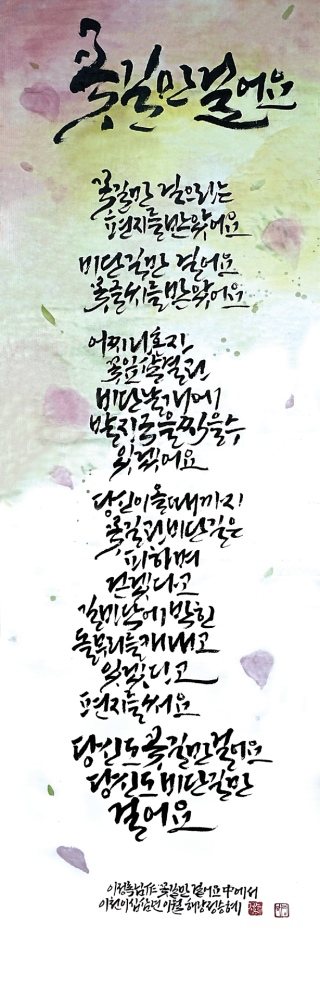 꽃길만 걸어요
꽃길만 걸으라는
편지를 받았어요
비단길만 걸어요
꽃글씨를 받았어요
어찌 나 혼자
꽃잎 살결과
비단 날개에
발자국을 찍을 수
있겠어요
당신이 올 때까지
꽃길과 비단길은
피하며
걷겠다고
길바닥에 박힌
돌부리를 캐내고
있겠다고
편지를 써요
당신도 꽃길만 걸어요
당신도 비단길만
걸어요
이정록님作 꽃길만 걸어요 中에서
이천이십삼년 이월 해강 정승혜